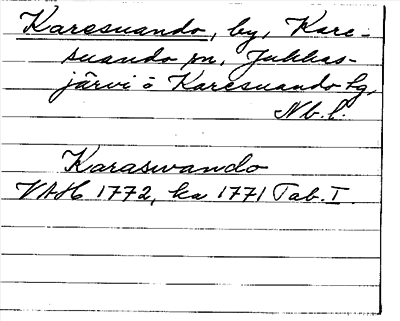 Karesuando, by, Kare-
suando sn, Jukkas-
järvi o Karesuando tg,
Nb. l.
Karaswando
VAH 1772, ka 1771 Tab. I.